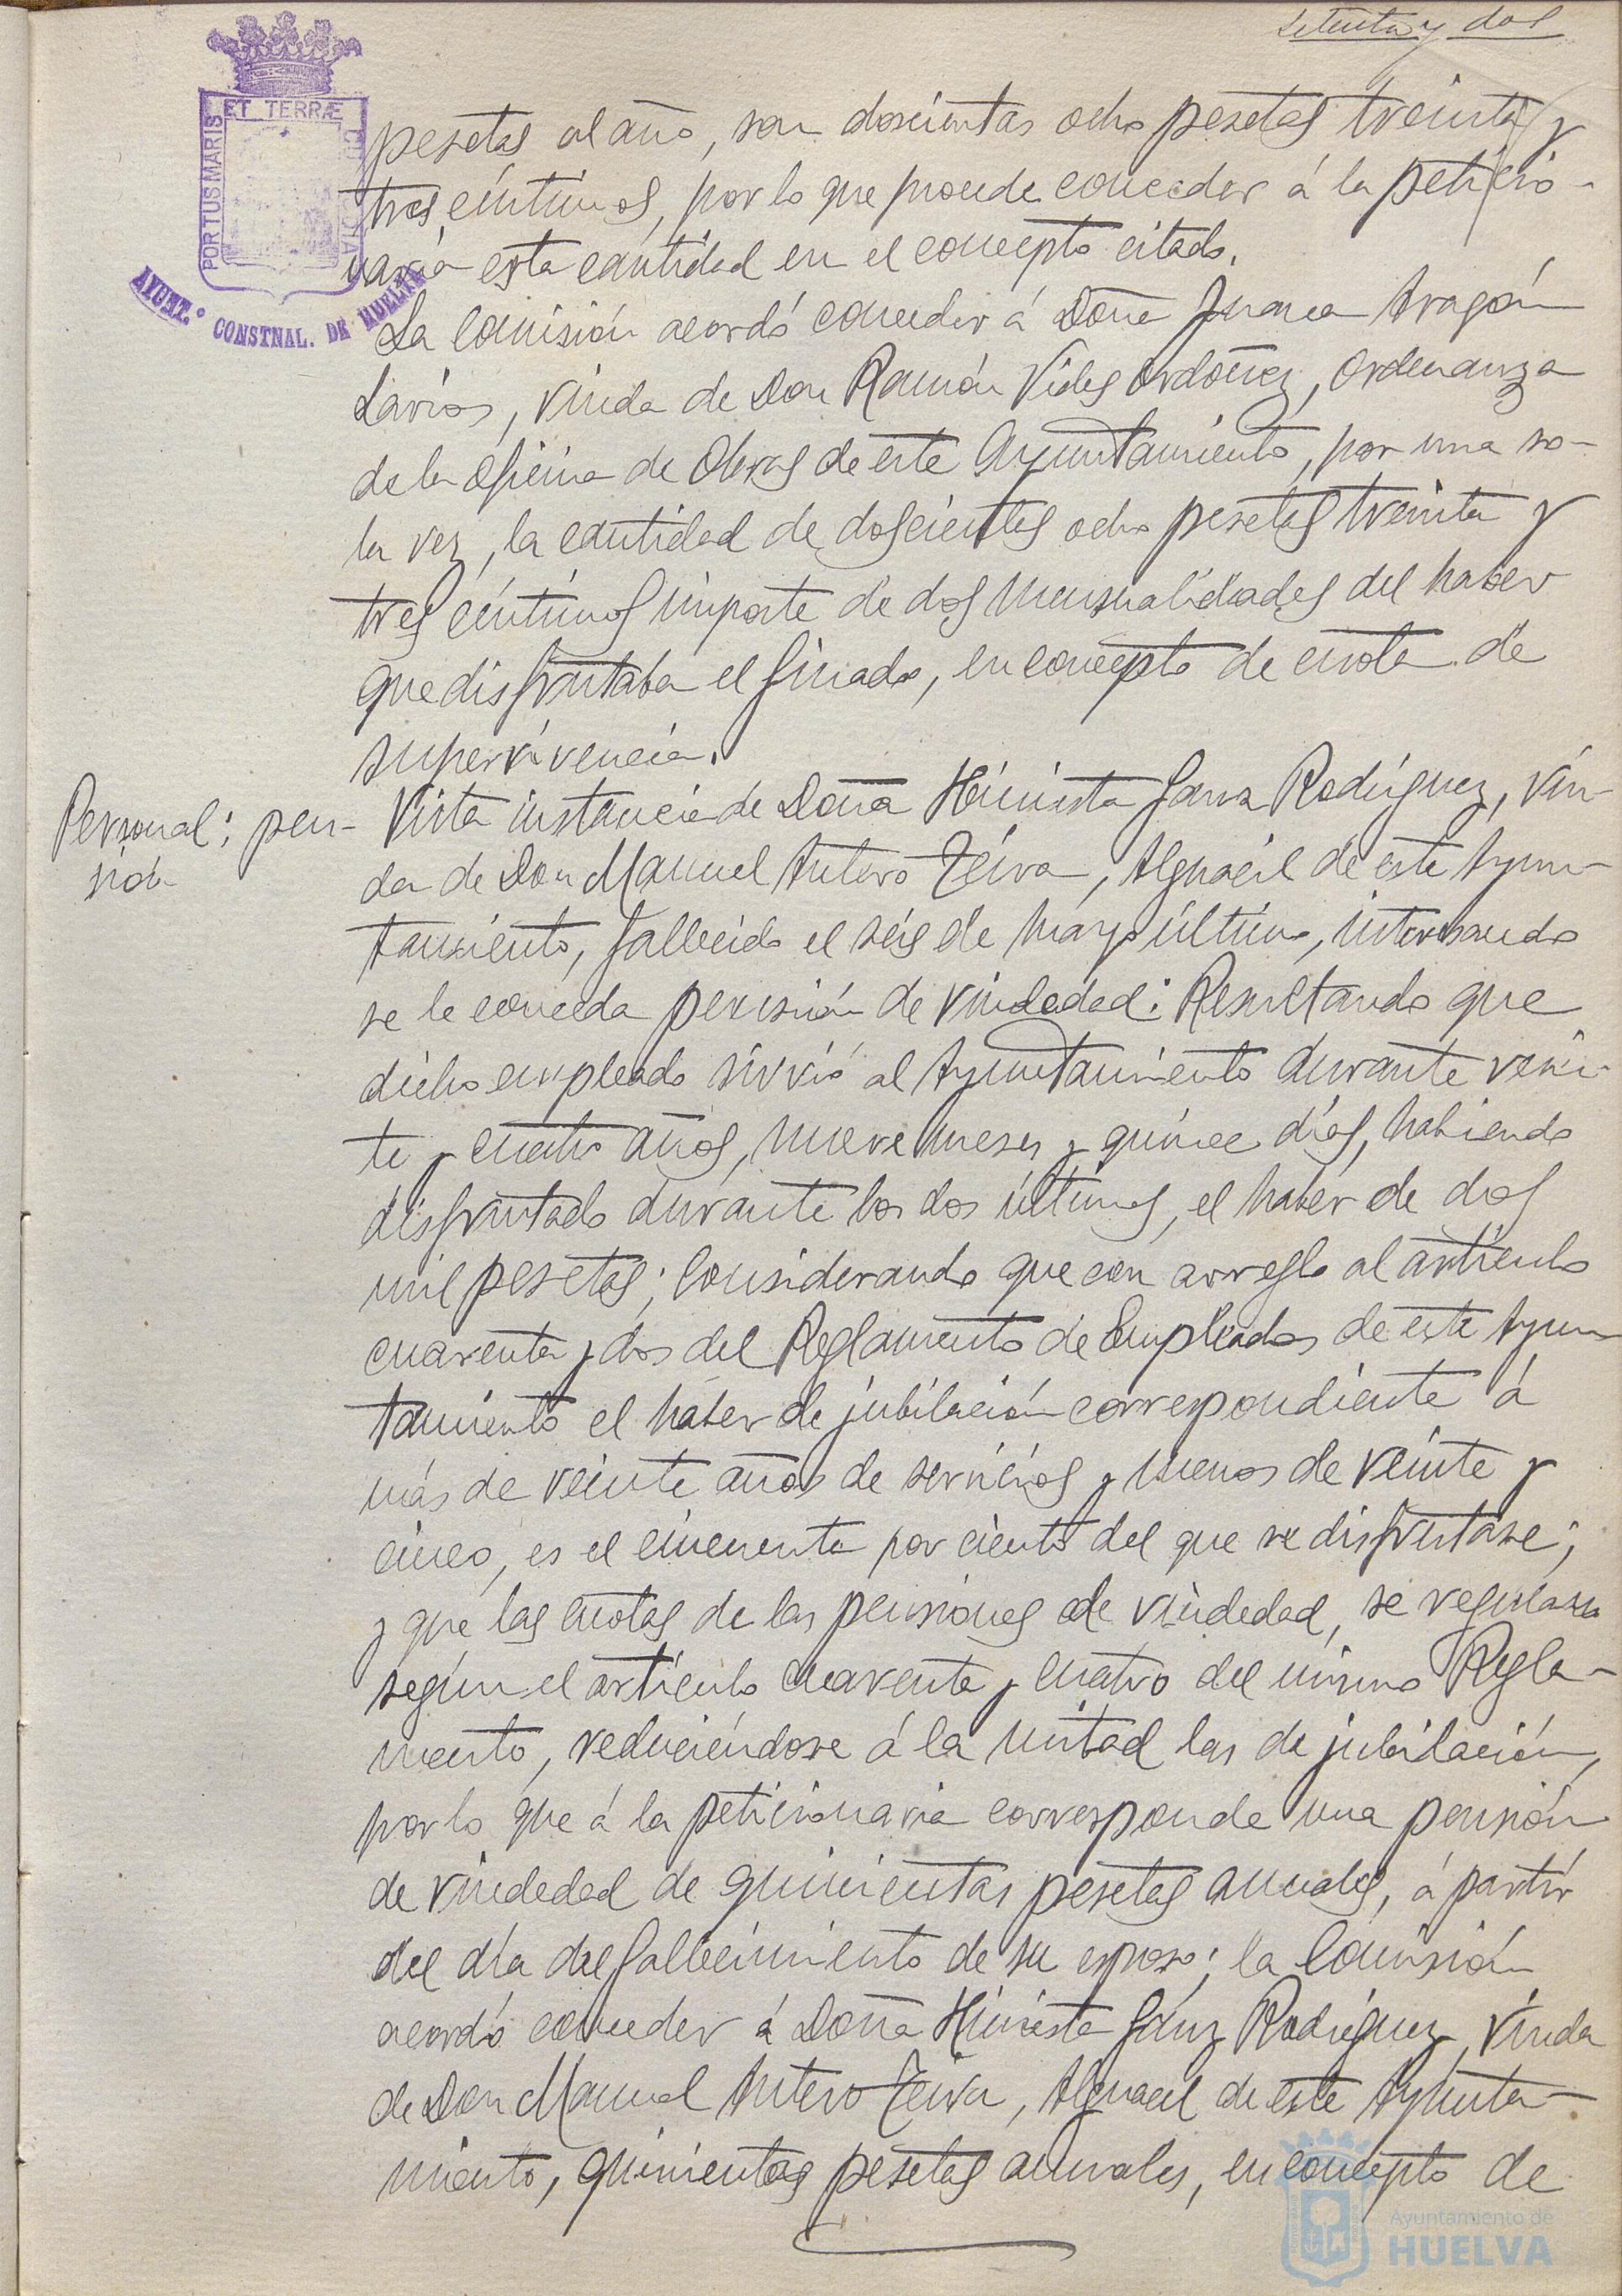 setenta y dos
PORTUS MARIS
ET TERRÆ
CUSTODIA
AYUNT.º CONSTNAL. DE HUELVA
pesetas al año, son doscientas ocho pesetas treinta y
tres céntimos, por lo que procede conceder á la peticio-
naria esta cantidad en el concepto citado.
La Comisión acordó conceder á Doña Juana Aragón
Larios, viuda de Don Ramón Vides Ordoñez, Ordenanza
de la Oficina de Obras de este Ayuntamiento, por una so-
la vez, la cantidad de doscientas ocho pesetas treinta y
tres céntimos importe de dos mensualidades del haber
que disfrutaba el finado, en concepto de cuota de
supervivencia.
Personal: pen-
sión
Vista instancia de Doña Hiniesta Sanz Rodríguez, viu-
da de Don Manuel Antero Teiva, Alguacil de este Ayun-
tamiento, fallecido el seis de marzo último, interesando
se le conceda pensión de viudedad: Resultando que
dicho empleado sirvió al Ayuntamiento durante vein-
te y cuatro años, nueve meses y quince días, habiendo
disfrutado durante los dos últimos, el haber de dos
mil pesetas; Considerando que con arreglo al artículo
cuarenta y dos del Reglamento de Empleados de este Ayun
tamiento el haber de jubilación correspondiente á
más de veinte años de servicios y menos de veinte y
cinco, es el cincuenta por ciento del que se disfrutase;
y que las cuotas de las pensiones de viudedad, se regulan
según el artículo cuarenta y cuatro del mismo Regla-
mento, reduciéndose á la mitad las de jubilación,
por lo que á la peticionaria corresponde una pensión
de viudedad de quinientas pesetas anuales, á partir
del día del fallecimiento de su esposo; la Comisión
acordó conceder á Doña Hiniesta Sánz Rodríguez, viuda
de Don Manuel Antero Teiva, Alguacil de este Ayunta-
miento, quinientas pesetas anuales, en concepto de
Ayuntamiento de
HUELVA